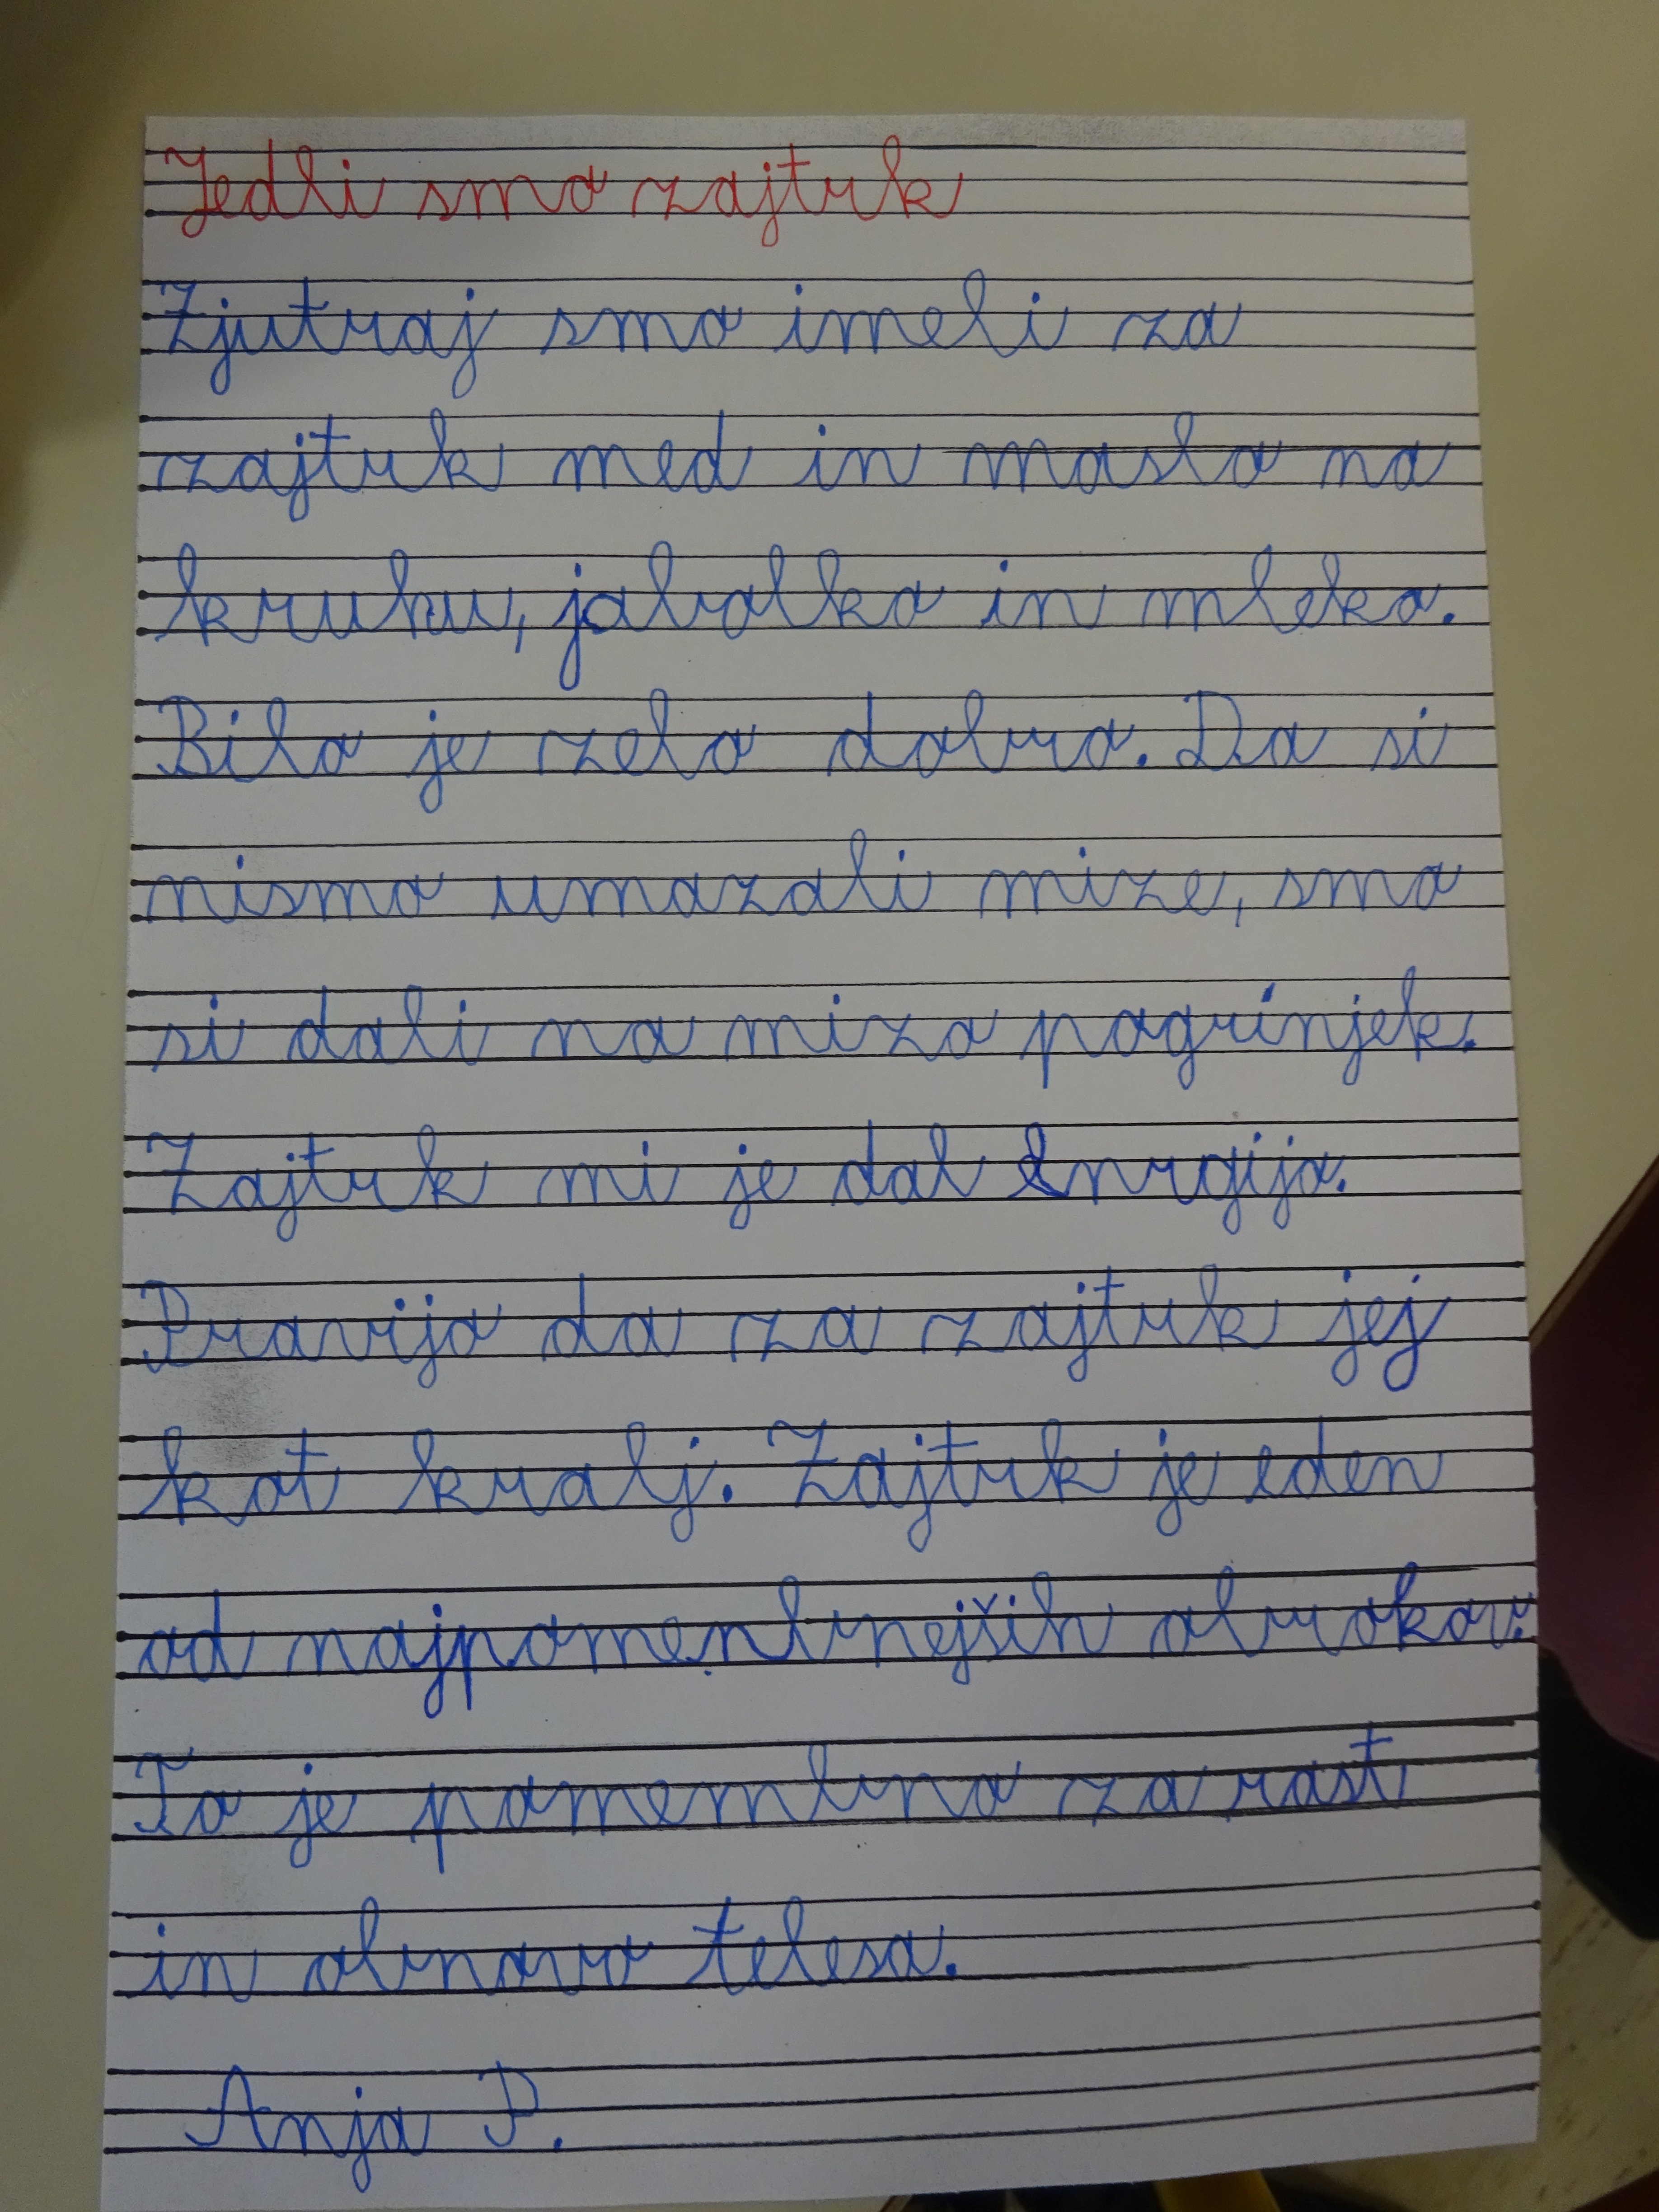 Jedli smo zajtrk
Zjutraj smo imeli za
zajtrk med in maslo na
kruhu, jabolko in mleko.
Bilo je zelo dobro. Da si
nismo umazali mize, smo
si dali na mizo pogrinjek.
Zajtrk mi je dal enrgijo.
Pravijo da za zajtrk jej
kot kralj. Zajtrk je eden
od najpomenbnejših obrokov.
To je pomembno za rast
in obnovo telesa.
Anja P.